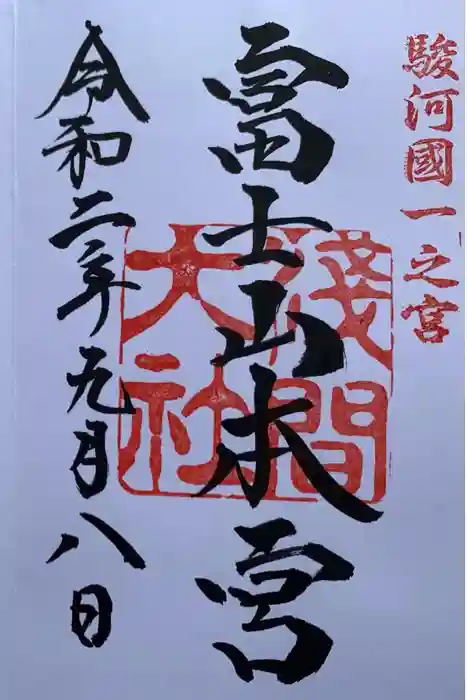 駿河國一之宮
富士山本宮
淺間
大社
令和二年九月八日